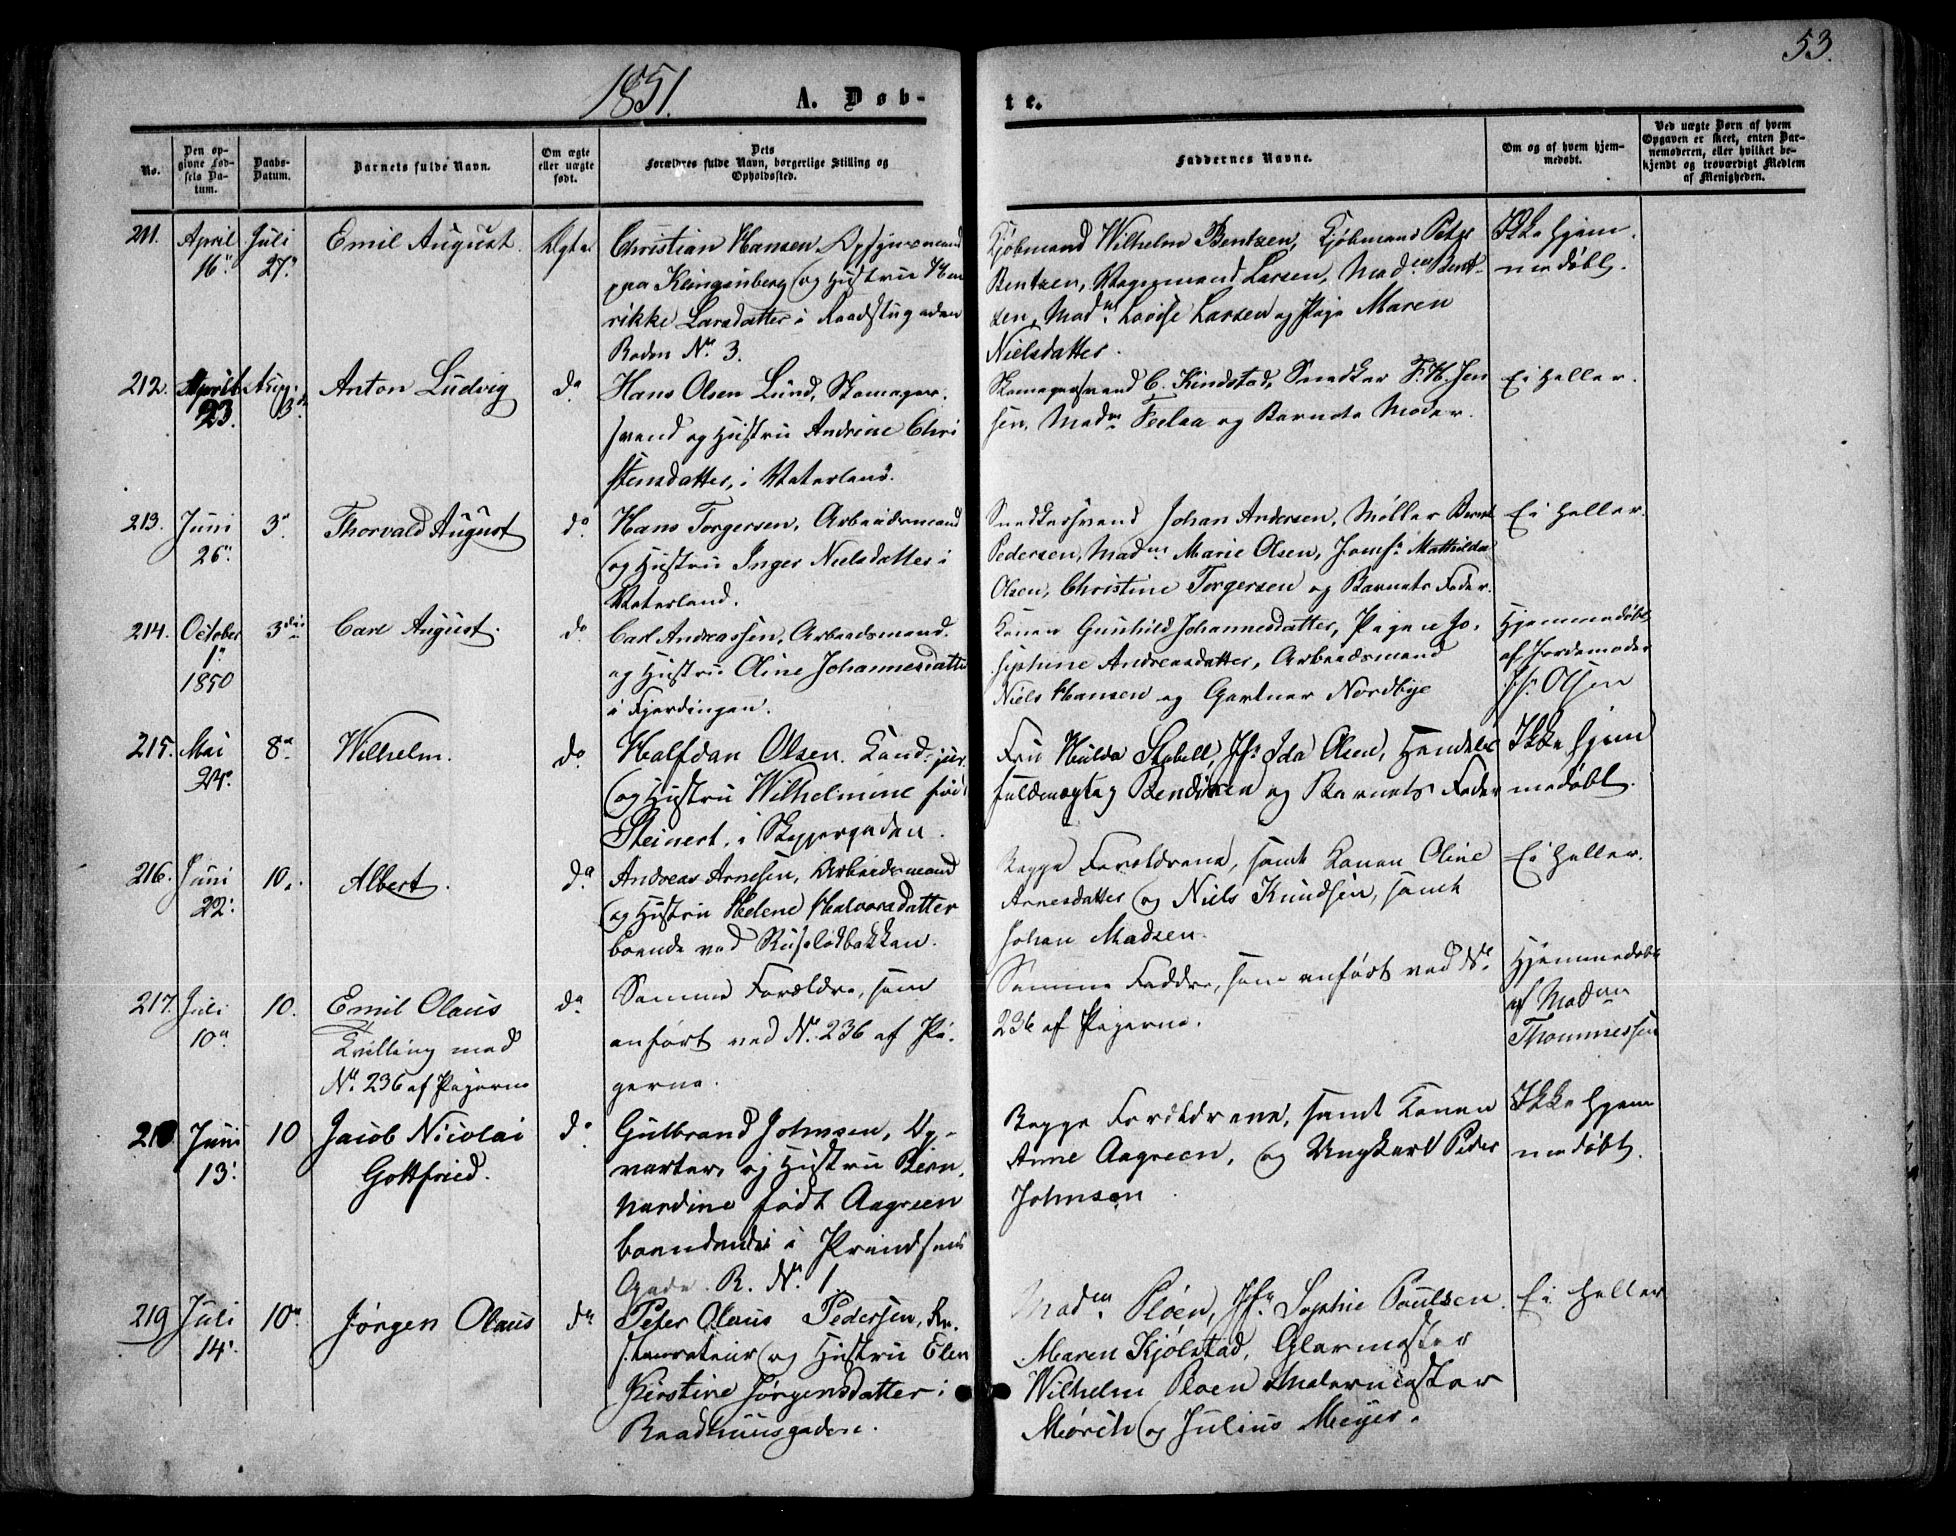 53.
1851.
A. Døb-
te.
No.
Den op-
givne Fød-
sels Da-
tum.
Daabs-
Datum.
Barnets fulde Navn.
Om ægte
eller uægte
født.
Dets
Forældres fulde Navn, borgerlige Stilling og
Opholdssted.
Faddernes Navne.
Om og af hvem hjem-
medøbt.
Ved uægte Børn af hvem
Opgaven er skeet, enten Bar-
nemoderen, eller hvilket be-
kjendt og troværdigt Medlem
af Menigheden.
211.
April
16.
Juli
27.
Emil August.
Ægte.
Christian Hansen, Opsynsmand
paa Klingenberg og Hustru Hen
rikke Larsdatter i Raadstugaden
Roden No 3.
Kjøbmand Wilhelm Bentzen, Kjøbmand Peter
Bentzen, Larsen, Madm Bent-
zen, Madm Lovise Larsen og Pige Maren
Nielsdatter.
Ikke hjem
medøbt.
212.
April
23.
Aug.
3.
Anton Ludvig
do
Hans Olsen Lund, Skomager-
svend og Hustru Andrine Chri
stensdatter, i Vaterland.
Skomagersvend C. Kindstad, Snedker F. H. Jen
sen, Madm og Barnets Moder.
Ei heller.
213.
Juni
26.
3.
Thorvald August
do
Hans Torgersen, Arbeidsmand
og Hustru Inger Nielsdatter i
Vaterland.
Snedkersvend Johan Andersen, Møller Bernt
Pedersen, Madm Marie Olsen, Jomf. Mathilda
Olsen, Christine Torgersen og Barnets Fader.
Ei heller.
214.
October
1.
1850
3die
Carl August.
do
Carl Andreassen, Arbeidsmand
og Hustru Oline Johannesdatter
i Fjerdingen.
Konen Gunhild Johannesdatter, Pigen Jo-
sephine Andreasdatter, Arbeidsmand
Niels Hansen og Gartner Nordbye
Hjemmedøbt
af Jordemoder
Jf. Olsen
215.
Mai
24.
8.
Wilhelm.
do
Halfdan Olsen Cand: jur.
og Hustru Wilhelmine født
Steinert, i Skippergaden.
Fru Hulda Stabell, Jfr Ida Olsen, Handels
fuldmægtig Bendixen og Barnets Fader
Ikke hjem
medøbt.
216.
Juni
22.
10.
Albert.
do
Andreas Arnesen, Arbeidsmand
og Hustru Helene Halvorsdatter
boende ved Ruseløkbakken.
Begge Forældrene, samt Konen Oline
Arnesdatter og Niels Knudsen, samt
Johan Madsen.
Ei heller.
217.
Juli
10.
10.
Emil Olaus
Tvilling med
No 236 af Pigerne
do
Samme Forældre, som
anført ved No 236 af Pi-
gerne.
Samme Faddre, som anført ved No
236 af Pigerne.
Hjemmedøbt
af Madm
Thommessen
218
Juni
13.
10
Jacob Nicolai
Gottfried.
do
Gulbrand Johnsen,
og Hustru Bern
hardine født Aagreen
boendende i Prindsens
Gade R. No 1.
Begge Forældrene, samt Konen
Anne Aagreen, og Ungkarl Peder
Johnsen
Ikke hjem
medøbt.
219
Juli
14.
10.
Jørgen Olaus
do
Peter Olaus Pedersen, Re-
staurateur og Hustru Elen
Kirstine Jørgensdatter i
Raadhuusgaden.
Madm Pløen, Jfr Sophie Poulsen
Maren Kjølstad, Glarmester
Wilhelm Pløen Malermester
Mørch og Julius Meyer.
Ei heller